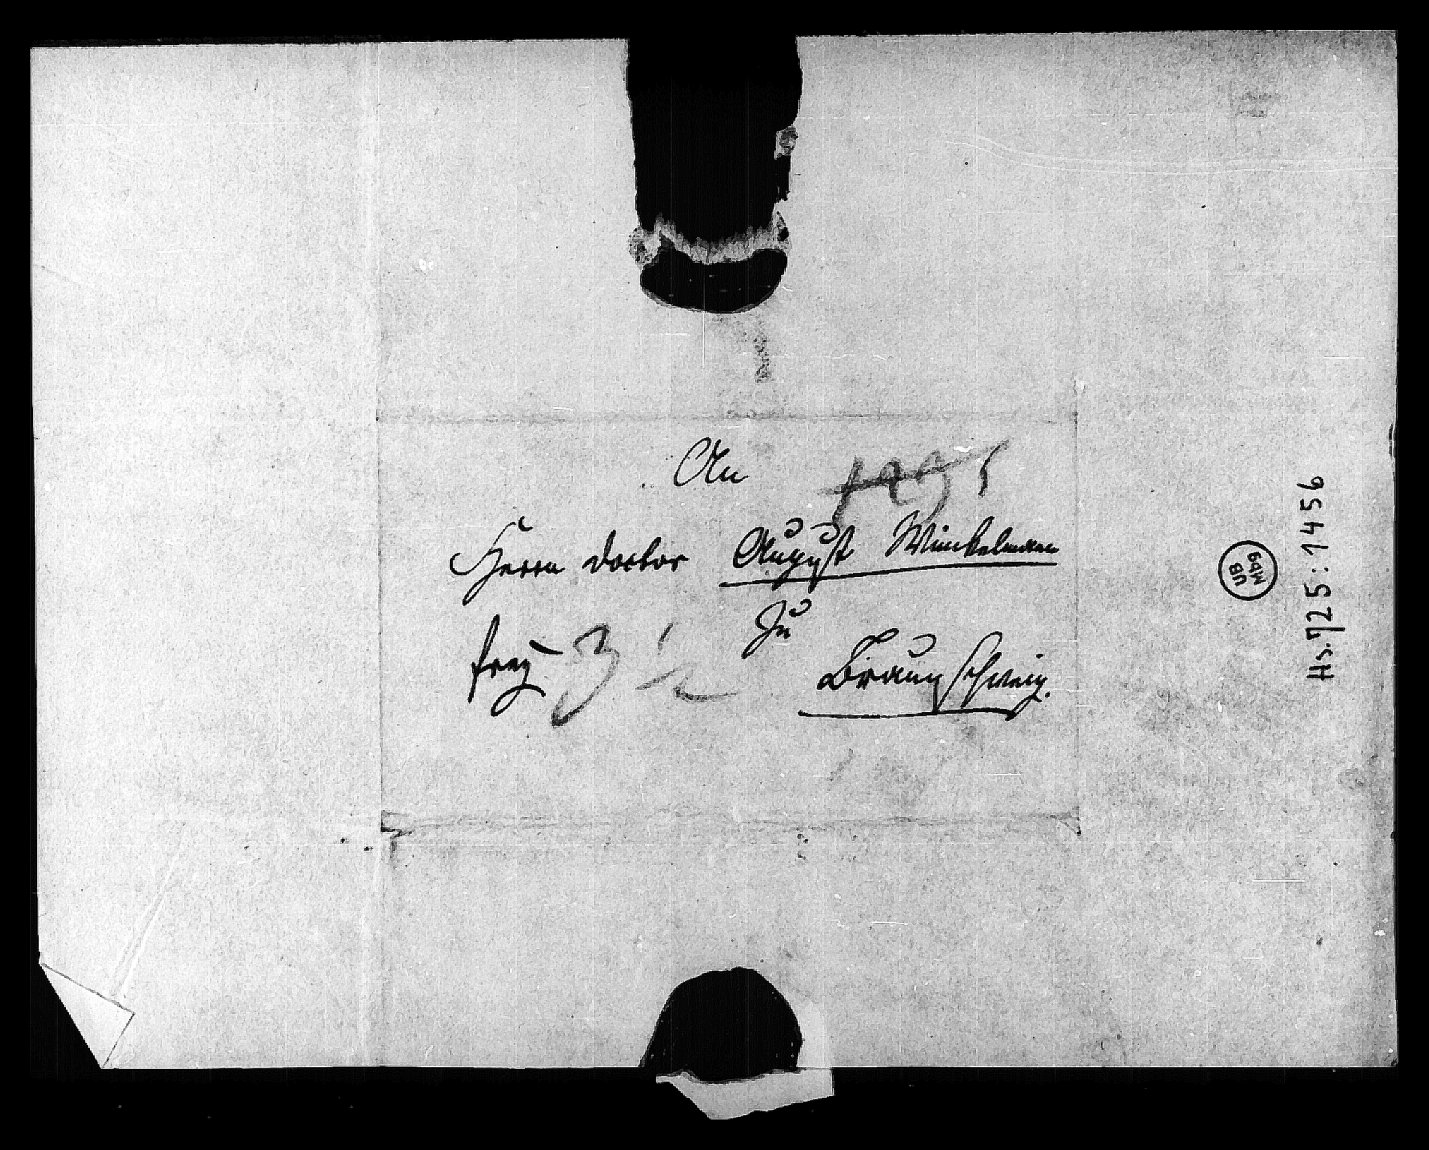 An
Herrn doctor August Winkelmann
Zu
frey 3 1/2
Braunschweig.
UB
Mbg
Hs. 725:1456